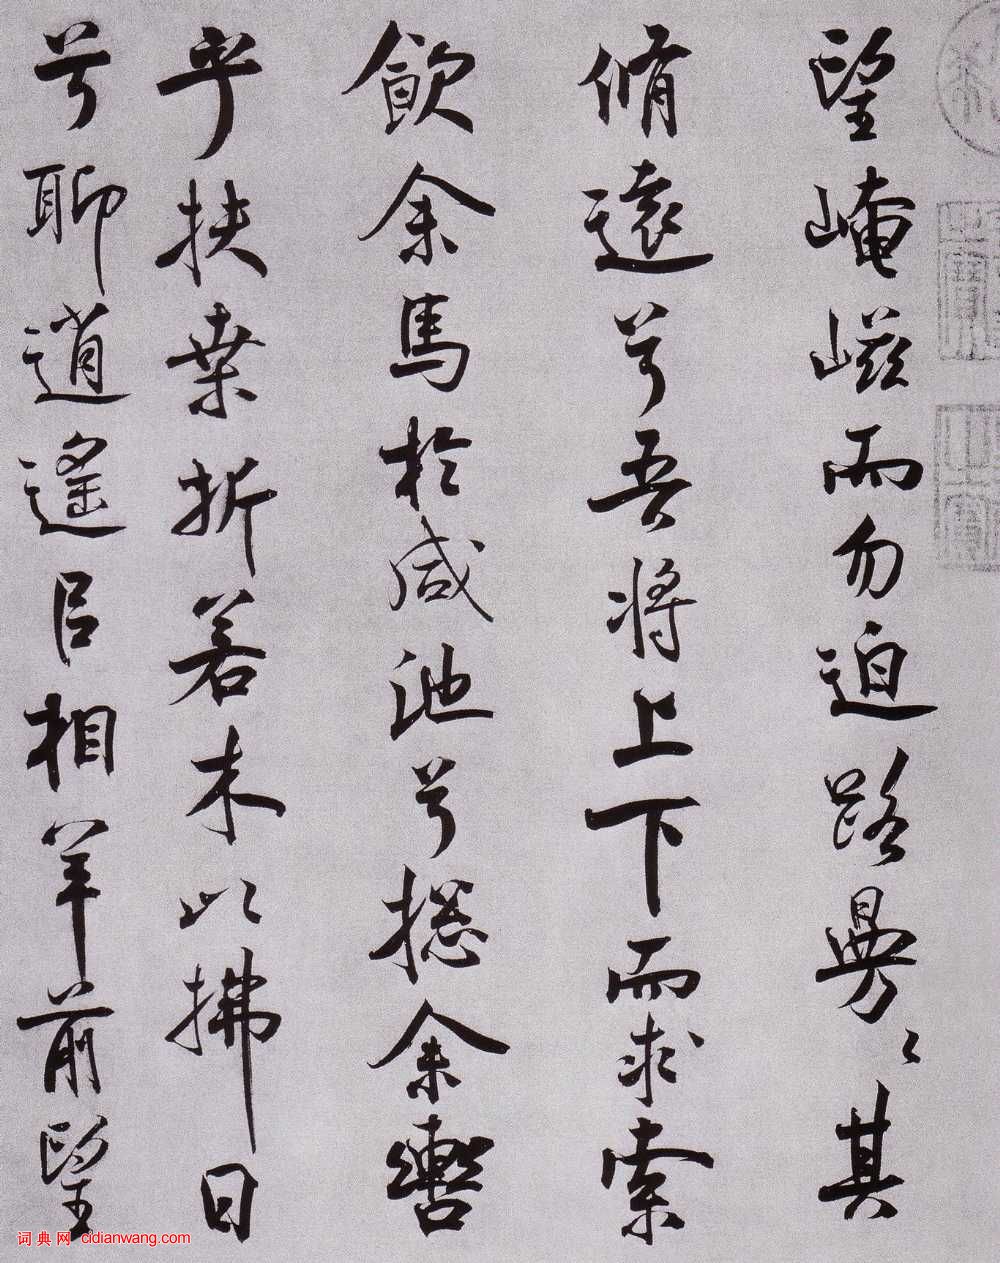 望崦嵫而勿迫路曼〻其
脩遠兮吾将上下而求索
飲余馬於咸池兮揔余轡
乎扶桒折若木以拂日
兮聊逍遙㠯相羊前望
词典网 cidianwang.com